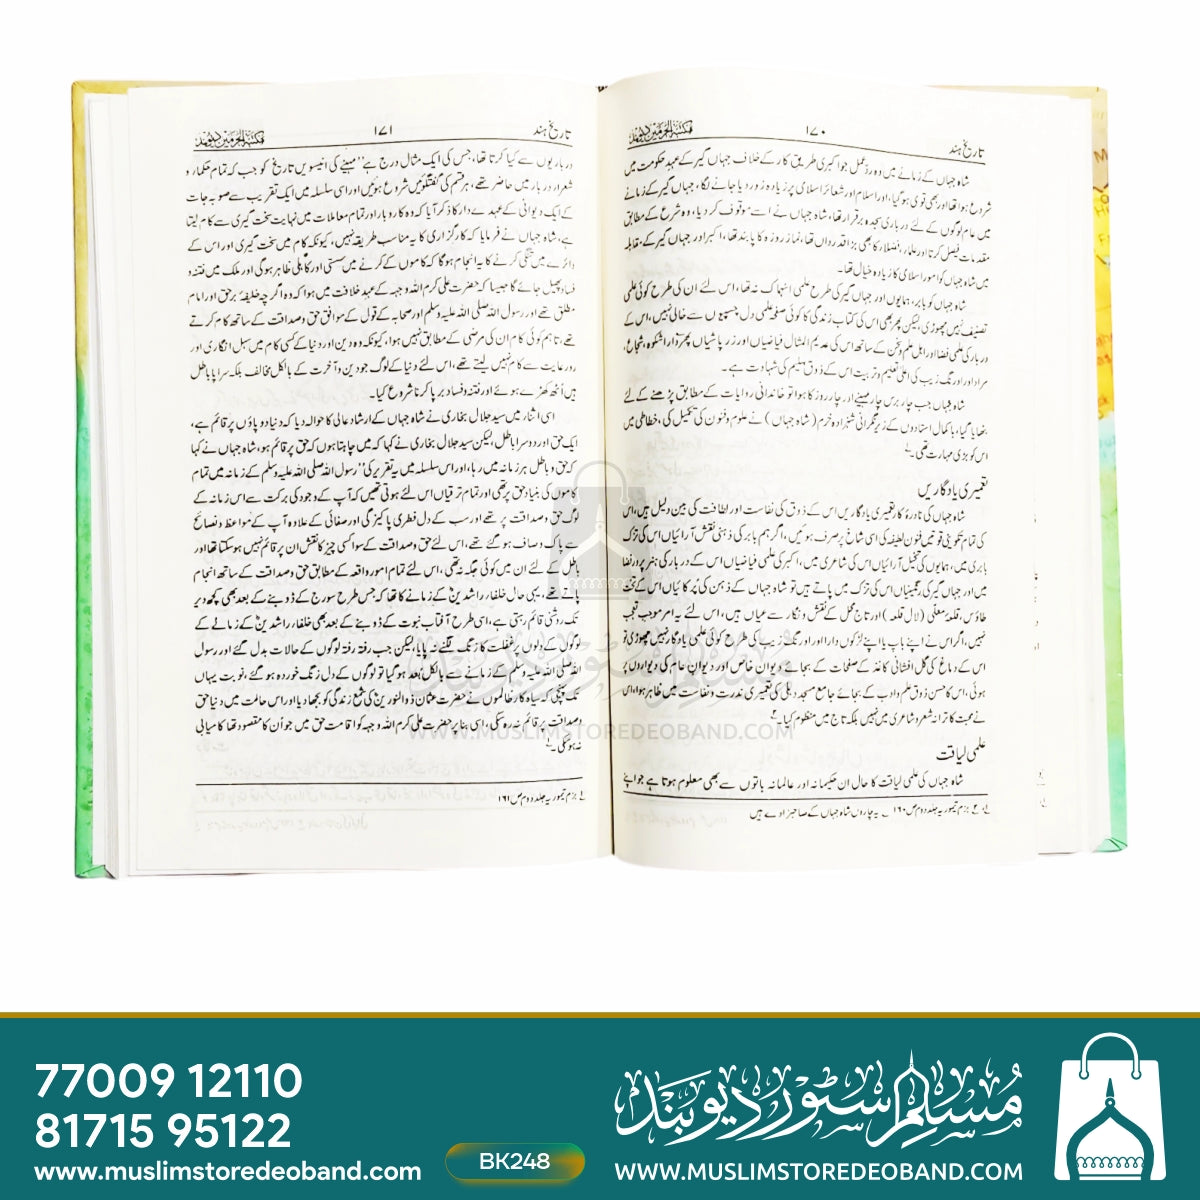 تاریخ ہند
۱۷۰
مکتبۃ الحرمین دیوبند
شاہ جہاں کے زمانے میں وہ ردعمل جو اکبری طریق کار کے خلاف جہاں گیر کے عہد حکومت میں
شروع ہوا تھا اور بھی قوی ہو گیا، اور اسلام اور شعائر اسلامی پر زیادہ زور دیا جانے لگا، جہاں گیر کے زمانے
میں عام لوگوں کے لئے درباری سجدہ برقرار تھا، شاہ جہاں نے اسے موقوف کر دیا، وہ شرع کے مطابق
مقدمات فیصل کرتا اور علماء، فضلاء کا بھی بڑا قدر داں تھا، نماز روزہ کا پابند تھا، اکبر اور جہاں گیر کے مقابلہ
میں شاہ جہاں کو امور اسلامی کا زیادہ خیال تھا۔
شاہ جہاں کو بابر، ہمایوں اور جہاں گیر کی طرح علمی انہماک نہ تھا، اس لئے ان کی طرح کوئی علمی
تصنیف نہیں چھوڑی، لیکن پھر بھی اس کی کتاب زندگی کا کوئی صفحہ علمی دل چسپیوں سے خالی نہیں، اس کے
دربار کی علمی فضا اور اہل علم وفن کے ساتھ اس کی عدیم المثال فیاضیاں اور زرپاشیاں پھر دارا شکوہ، شجاع،
مراد اور اورنگ زیب کی اعلیٰ تعلیم و تربیت اس کے ذوق سلیم کی شہادت ہے۔
شاہ جہاں جب چار برس چار مہینے اور چار روز کا ہوا تو خاندانی روایات کے مطابق پڑھنے کے لئے
بٹھایا گیا، باکمال استادوں کے زیر نگرانی شہزادہ خرم (شاہ جہاں) نے علوم وفنون کی تکمیل کی، خطاطی میں
اس کو بڑی مہارت تھی۔
تعمیری یادگاریں
شاہ جہاں کی نادرۂ کار تعمیری یادگاریں اس کے ذوق کی نفاست اور لطافت کی بین دلیل ہیں، اس
کی تمام تکوینی قوتیں فنون لطیفہ کی اسی شاخ پر صرف ہوئیں، اگر ہم بابر کی ذہنی نقش آرائیاں اس کی تزک
بابری میں، ہمایوں کی تخیل آرائیاں اس کی شاعری میں، اکبر کی علمی فیاضیاں اس کے درباری ہنر پرور فضا
میں اور جہاں گیر کی رنگینیاں اس کی تزک میں پاتے ہیں تو شاہ جہاں کے ذہن کی پرکاٹیاں اس کے تخت
طاؤس، قلعۂ معلّٰی (لال قلعہ) اور تاج محل کے نقش و نگار سے عیاں ہیں، اس لئے یہ امر موجب تعجب
نہیں، اگر اس نے اپنے باپ یا اپنے لڑکوں دارا اور اورنگ زیب کی طرح کوئی علمی یادگار نہیں چھوڑی تو
اس کے دماغ کی گل افشانی کاغذ کے صفحات کے بجائے دیوان خاص اور دیوان عام کی دیواروں پر
ہوئی، اس کا حسن ذوق علم وادب کے بجائے جامع مسجد دہلی کی تعمیری ندرت ونفاست میں ظاہر ہوا، اس
نے محبت کا ترانہ شعر و شاعری میں نہیں بلکہ تاج میں منظوم کیا۔
علمی لیاقت
شاہ جہاں کی علمی لیاقت کا حال ان حکیمانہ اور عالمانہ باتوں سے بھی معلوم ہوتا ہے جو اپنے
بزم تیموریہ جلد دوم ص ۱۶۰ یہ چاروں شاہ جہاں کے صاحبزادے ہیں
تاریخ ہند
۱۷۱
مکتبۃ الحرمین دیوبند
درباریوں سے کیا کرتا تھا، جس کی ایک مثال درج ہے "مہینے کی انیسویں تاریخ کو جب کہ تمام حکماء و
شعراء دربار میں حاضر تھے، ہر قسم کی گفتگوئیں شروع ہوئیں اور اسی سلسلہ میں ایک تقریب سے صوبہ جات
کے ایک دیوانی کے عہدے دار کا ذکر آیا کہ وہ کاروبار اور تمام معاملات میں نہایت سخت گیری سے کام لیتا
ہے، شاہ جہاں نے فرمایا کہ کارگزاری کا یہ مناسب طریقہ نہیں، کیونکہ کام میں سخت گیری اور اس کے
دائرے میں تنگی کرنے کا یہ انجام ہوگا کہ کاموں کے کرنے میں سستی اور کاہلی ظاہر ہوگی اور ملک میں فتنہ و
فساد پھیل جائے گا جیسا کہ حضرت علی کرم اللہ وجہہ کے عہد خلافت میں ہوا کہ وہ اگرچہ خلیفۂ برحق اور امام
مطلق تھے اور رسول اللہ صلی اللہ علیہ وسلم اور صحابہ کے قول کے موافق حق وصداقت کے ساتھ کام کرتے
تھے، تاہم کوئی کام ان کی مرضی کے مطابق نہیں ہوا، کیونکہ وہ دین اور دنیا کے کسی کام میں سہل انگاری اور
رورعایت سے کام نہیں لیتے تھے، اس لئے دنیا کے لوگ جو دین و آخرت کے بالکل مخالف بلکہ سراپا باطل
ہیں اٹھ کھڑے ہوئے اور فتنہ وفساد برپا کرنا شروع کیا۔
اسی اثناء میں سید جلال بخاری نے شاہ جہاں کے ارشاد عالی کا حوالہ دیا کہ دنیا دو پاؤں پر قائم ہے،
ایک حق اور دوسرا باطل، لیکن سید جلال بخاری نے کہا کہ میں چاہتا ہوں کہ حق پر قائم ہو، شاہ جہاں نے کہا
کہ حق و باطل ہر زمانہ میں رہا، اور اس سلسلہ میں یہ تقریر کی "رسول اللہ صلی اللہ علیہ وسلم کے زمانہ میں تمام
کاموں کی بنیاد حق پر تھی اور تمام ترقیاں اس لئے ہوتی تھیں کہ آپ کے وجود کی برکت سے اس زمانہ کے
لوگ حق وصداقت پر تھے اور سب کے دل فطری پاکیزگی اور صفائی کے علاوہ آپ کے مواعظ ونصائح
سے پاک وصاف ہو گئے تھے، اس لئے حق وصداقت کے سوا کسی چیز کا نقش ان پر قائم نہیں ہوسکتا تھا اور
باطل کے لئے ان میں کوئی جگہ نہ تھی، اس لئے تمام امور واقعہ کے مطابق حق وصداقت کے ساتھ انجام
پاتے تھے، یہی حال خلفاء راشدینؓ کے زمانے کا تھا کہ جس طرح سورج کے ڈوبنے کے بعد بھی کچھ دیر
تک روشنی قائم رہتی ہے، اسی طرح آفتاب نبوت کے ڈوبنے کے بعد بھی خلفاء راشدینؓ کے زمانے کے
لوگوں کے دلوں پر غفلت کا زنگ لگنے نہ پایا، لیکن جب رفتہ رفتہ لوگوں کے حالات بدل گئے اور رسول
اللہ صلی اللہ علیہ وسلم کے زمانے سے بالکل بعد ہو گیا تو لوگوں کے دل زنگ خوردہ ہو گئے، نوبت یہاں
تک پہنچی کہ سیاہ کار ظالموں نے حضرت عثمان ذوالنورینؓ کی شمع زندگی کو بجھا دیا اور اس حالت میں دنیا حق
وصداقت پر قائم نہ رہ سکی، اسی بناء پر حضرت علی کرم اللہ وجہہ کو اقامت حق میں جو ان کا مقصود تھا کامیابی
نہ ہوگی۔
بزم تیموریہ جلد دوم ص ۱۶۱
مسلم سٹور دیوبند
WWW.MUSLIMSTOREDEOBAND.COM
77009 12110
81715 95122
www.muslimstoredeoband.com
BK248
مسلم سٹور دیوبند
WWW.MUSLIMSTOREDEOBAND.COM